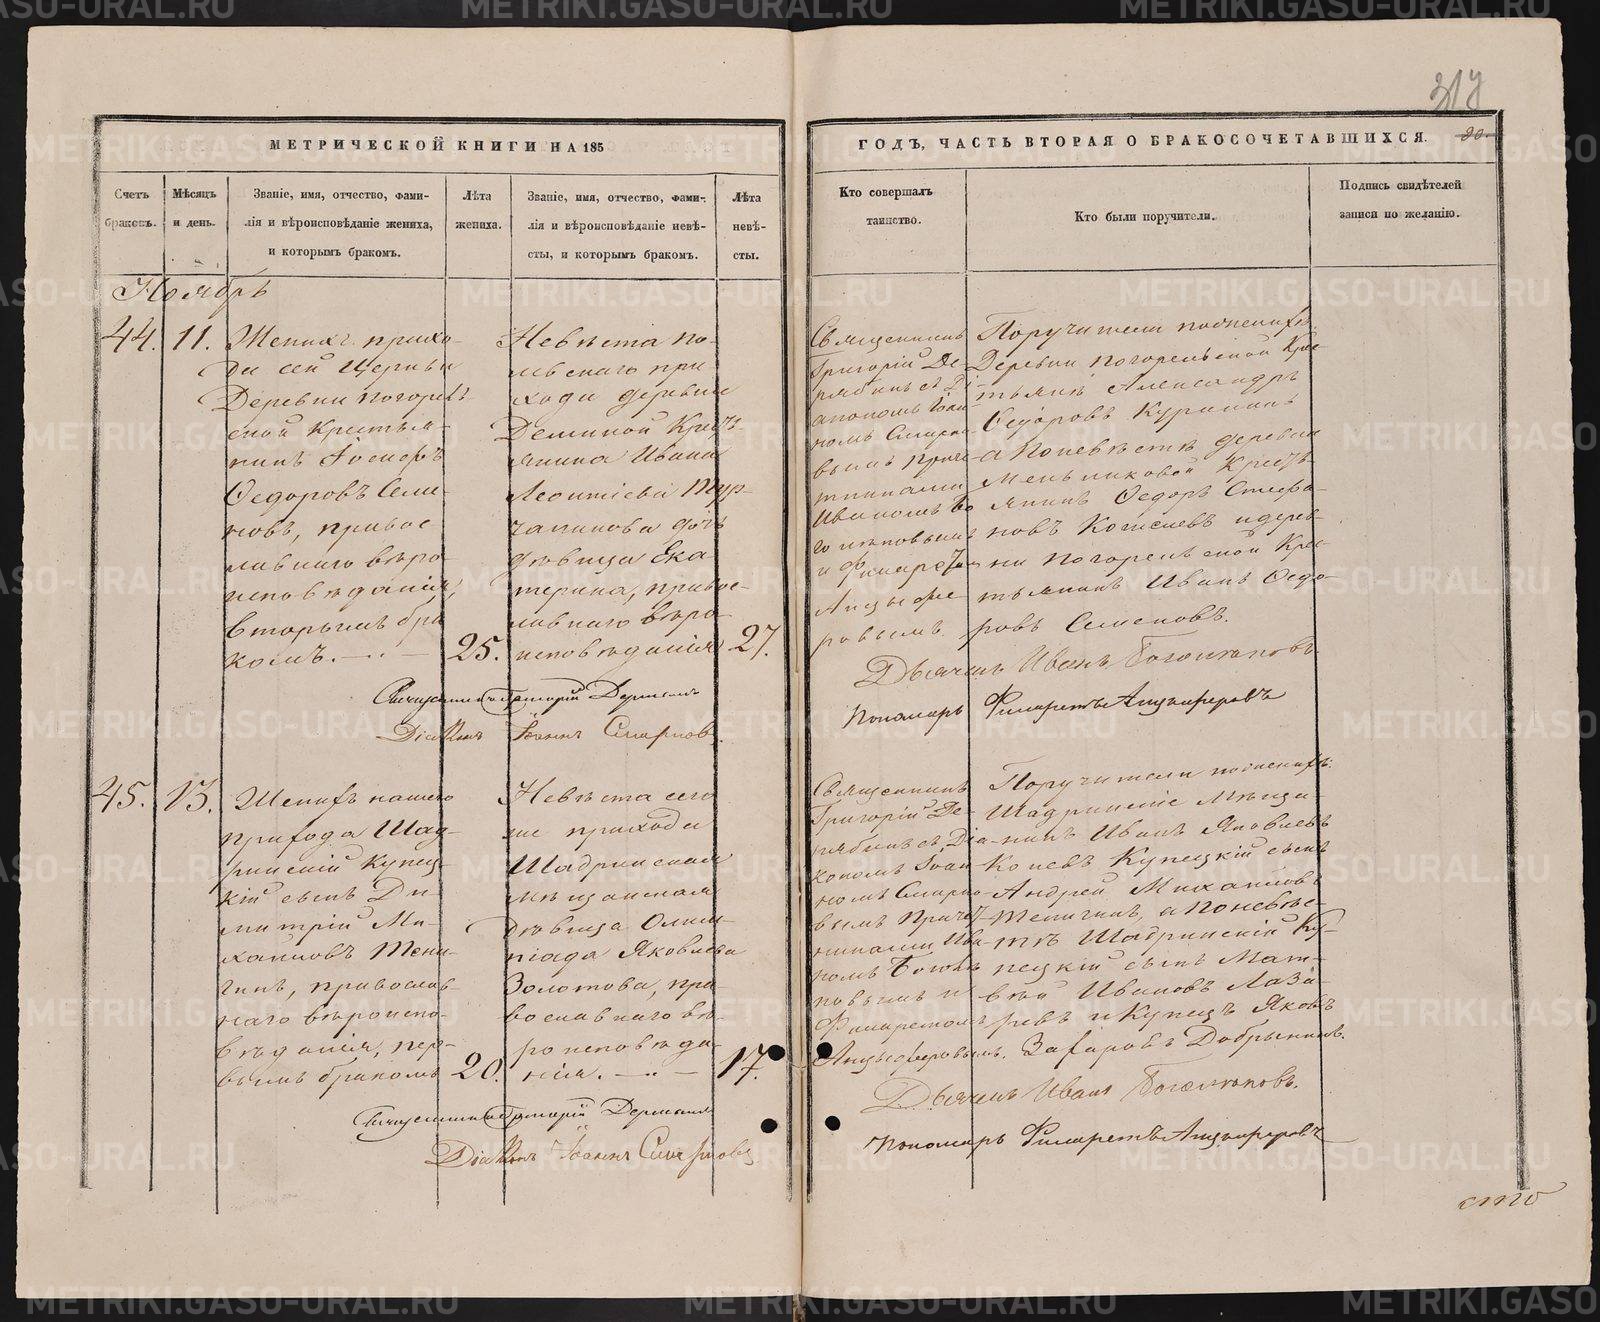 317
МЕТРИЧЕСКОЙ КНИГИ НА 185
ГОДЪ, ЧАСТЬ ВТОРАЯ О БРАКОСОЧЕТАВШИХСЯ.
Счетъ браковъ.
Мѣсяцъ и день.
Званіе, имя, отчество, фами-
лія и вѣроисповѣданіе жениха,
и которымъ бракомъ.
Лѣта
жениха.
Званіе, имя, отчество, фами-
лія и вѣроисповѣданіе невѣ-
сты, и которымъ бракомъ.
Лѣта
невѣ-
сты.
Кто совершалъ
таинство.
Кто были поручители.
Подпись свидѣтелей
записи по желанію.
Ноябрь
44.
11.
Женихъ прихо-
да сей Церкви
Деревни Погорель-
ской Крестья-
нинъ Іосифъ
Ѳедоровъ Семе-
новъ, правос
лавнаго вѣро-
исповѣданія,
вторымъ бра
комъ. — .. —
25.
Невѣста
при-
хода деревни
Деминой Крестъ-
янина Ивана
Леонтіева
дочь
дѣвица Ека-
терина, правос-
лавнаго вѣро-
исповѣданія
27.
Священникъ
Григорій Де-
рябинъ съ Ді-
акономъ Іоан-
номъ Смирно-
вымъ приче-
тниками
Иваномъ Бо
голѣповымъ
и Филаретом
Анцыфе-
ровымъ.
Поручители по женихѣ
Деревни Погорельской Крес-
тьянинъ Александръ
Ѳедоровъ
а по невѣстѣ деревни
Мельниковой Крестъ
янинъ Ѳедоръ Стефа-
новъ и дерев-
ни Погорельской Крес-
тьянинъ Иванъ Ѳедо-
ровъ Семеновъ.
Священникъ Григорій
Діаконъ Іоаннъ Смирновъ
Дьячекъ Иванъ Боголѣповъ
Пономарь Филаретъ Анцыферовъ
45.
13.
Женихъ нашего
прихода Шад-
ринскій Купец-
кій сынъ Ди
митрій Ми-
хаиловъ Тени-
гинъ, православ-
наго вѣроиспо-
вѣданія, пер-
вымъ бракомъ
20.
Невѣста сего
же прихода
Шадринская
мѣщанская
дѣвица Олим-
піада Яковлева
Золотова, пра-
вославнаго вѣ-
роисповѣда-
нія. — .. —
17.
Священникъ
Григорій Де-
рябинъ съ Діа-
кономъ Іоан-
номъ Смирно-
вымъ Причет-
никами Ива-
номъ Боголѣ
повымъ и
Филаретомъ
Анцыферовымъ.
Поручители по женихѣ:
Шадринскіе Мѣща-
нинъ Иванъ Яковлевъ
Коневъ Купецкій сынъ
Андрей Михаиловъ
Тенигинъ, а по невѣс-
тѣ Шадринскій Ку-
пецкій сынъ Мат-
вѣй Ивановъ Лаза-
ревъ и Купецъ Яковъ
Захаровъ Добрынинъ.
Священникъ Григорій
Діаконъ Іоаннъ Смирновъ
Дьячекъ Иванъ Боголѣповъ.
Пономарь Филаретъ Анцыферовъ
METRIKI.GASO-URAL.RU